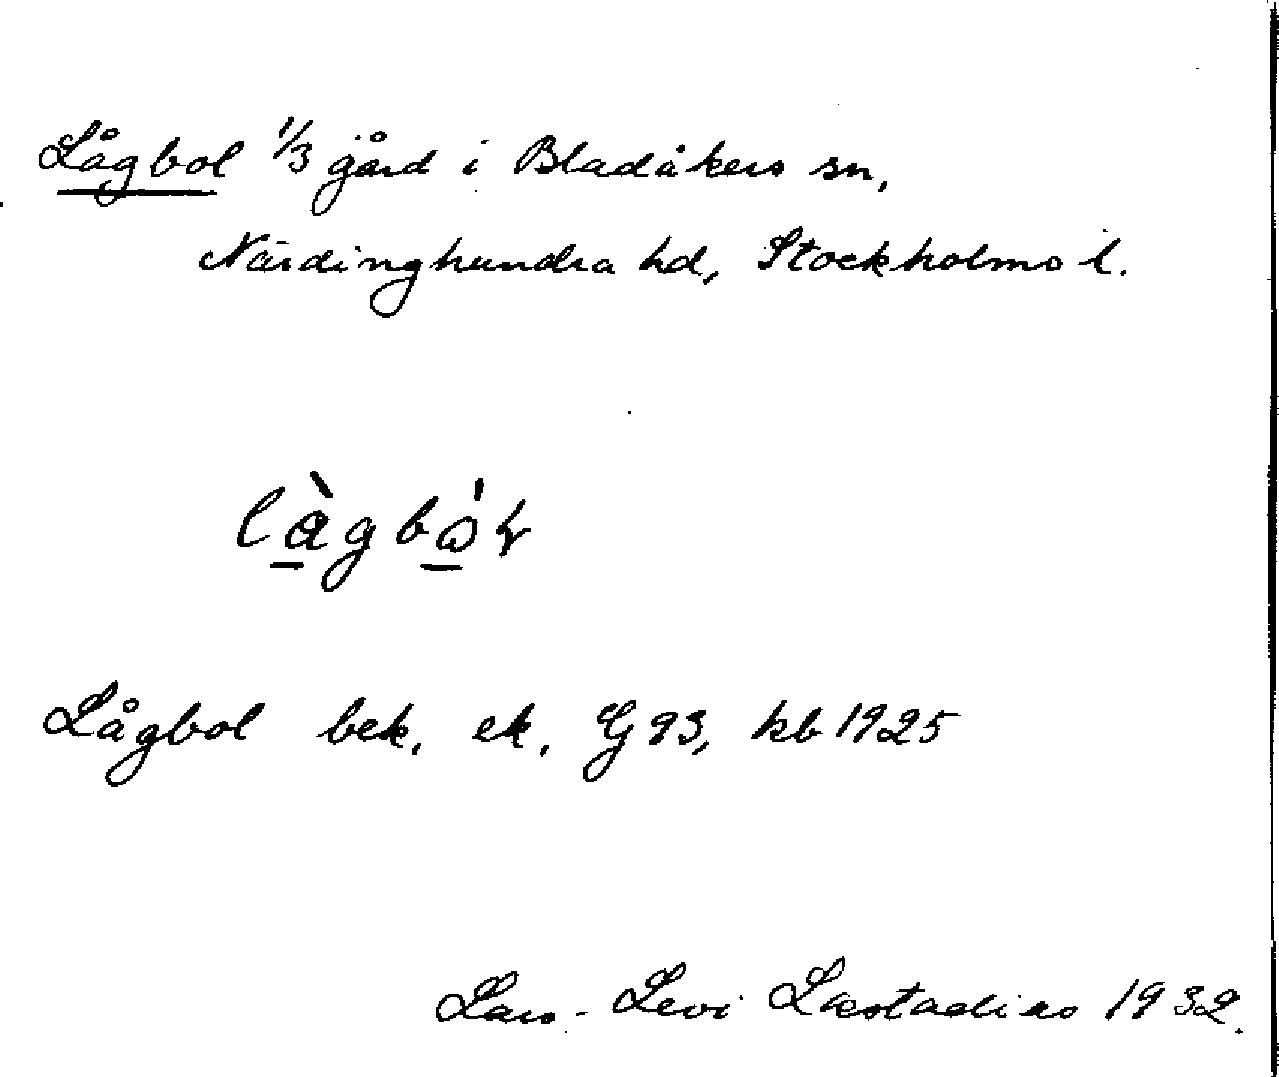 Lågbol 1/3 gård i Bladåkers sn,
Närdinghundra hd, Stockholms l.
làgbὼɽ
Lågbol bek. ek. G 93, kb 1925
Lars-Levi Læstadius 1932.